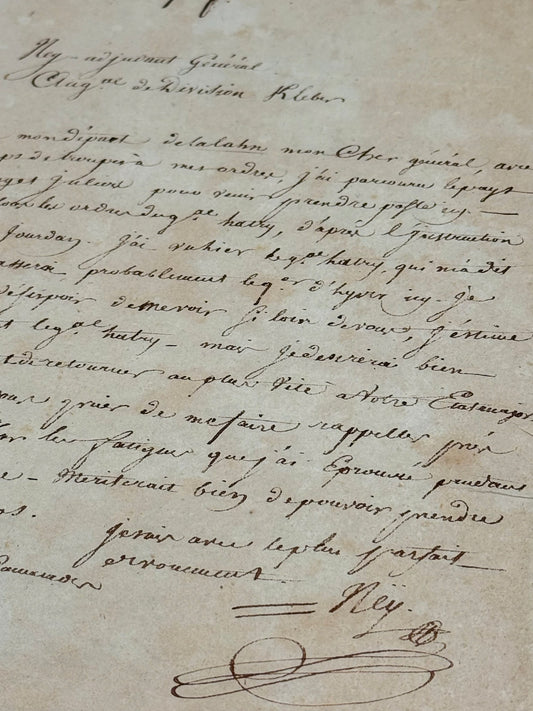 Ney adjudant Général
Au gal de Division Kleber
mon départ delalahn mon Cher général, avec
ps de troupes à mes ordres, j'ai parcouru le pays
juliers pour venir prendre poste icy.—
les ordres du gal hatry, d'après l'Instruction
Jourdan. J'ai vu hier le gal hatry, qui m'a dit
probablement le qer d'hyver icy. Je
désespoir de me voir si loin de vous, j'estime
le gal hatry — mais je desirerai bien
de retourner au plus vite a votre Etatmajor
prier de me faire rappeller près
les fatigues que j'ai Eprouvé pendant
e — Meriterait bien de pouvoir prendre
rs.
Je suis avec le plus parfait
devouement
Ney.